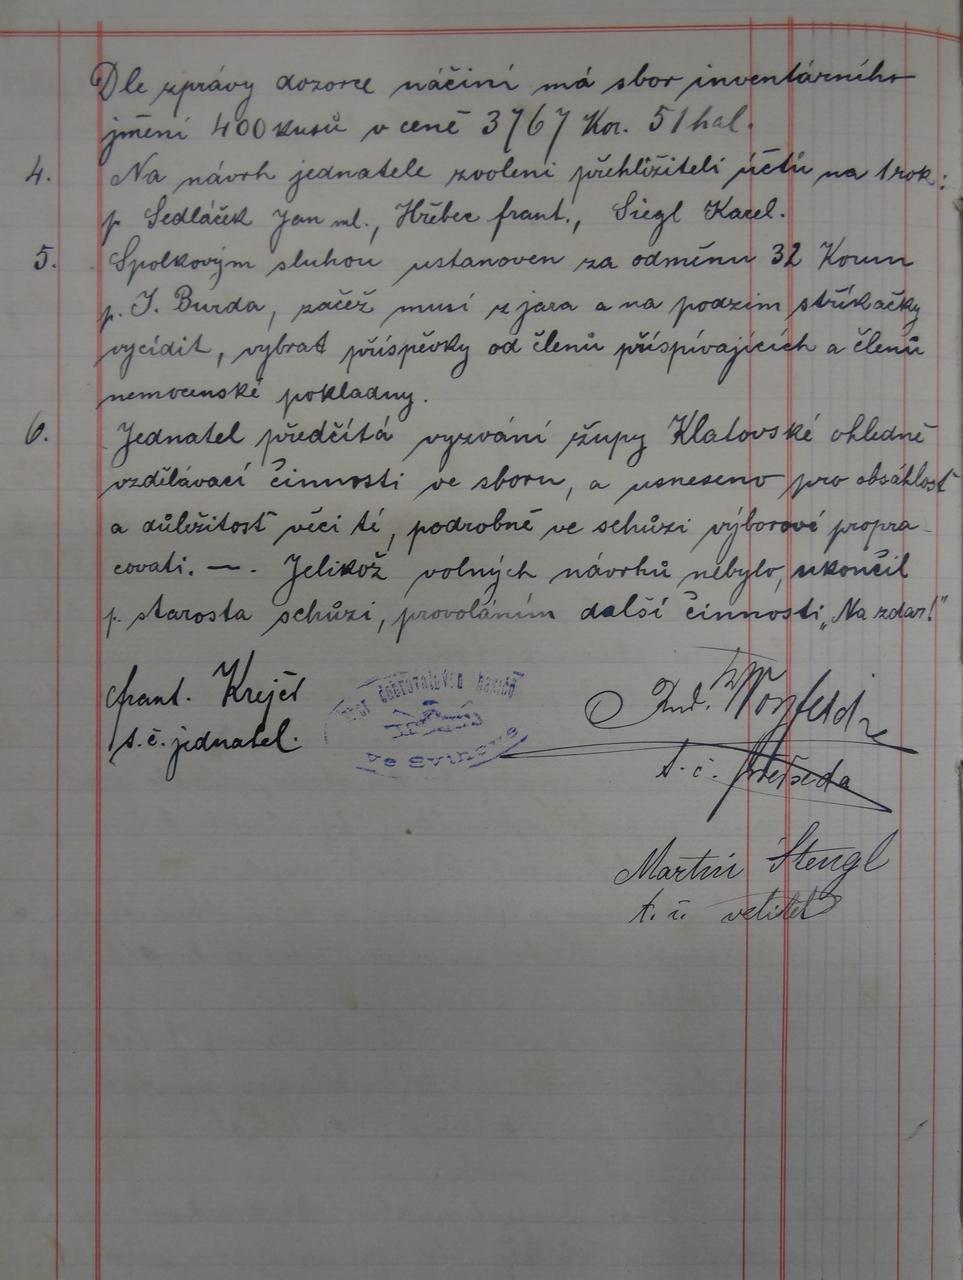 Dle zprávy dozorce náčiní má sbor inventárního
jmění 400 kusů v ceně 3767 Kor. 51 hal.
4. Na návrh jednatele zvoleni přehlížiteli účtů na 1 rok:
p. Sedláček Jan ml., Hřebec frant., Siegl Karel.
5. Spolkovým sluhou ustanoven za odměnu 32 Korun
p. J. Burda, začež musí z jara a na podzim stříkačky
vycídit, vybrat příspěvky od členů přispívajících a členů
nemocenské pokladny.
6. Jednatel předčítá vyzvání župy Klatovské ohledně
vzdělávací činnosti ve sboru, a usneseno pro obsáhlost
a důležitost věci té, podrobně ve schůzi výborové propra-
covati. —. Jelikož volných návrhů nebylo, ukončil
p. starosta schůzi, provoláním další činnosti „Na zdar!"
frant. Krejčí
t. č. jednatel.
Sbor dobrovolných hasičů
ve Svinově
t. č.
Martin Štengl
t. č. velitel